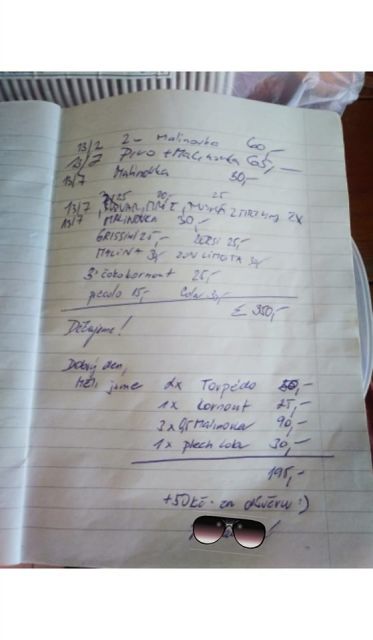 13/7 2 - Malinovka 60,-
13/7 Pivo + Malinovka 65,-
13/7 Malinovka 30,-
25 20,- 25
13/7, 2x
13/7, MALINOVKA 30,-
GRISSINI 25,- 25,-
MALINA 30,- LIMETA 30,-
čokokornout 25,-
piccolo 15,- Cola 30,-
Σ 350,-
Děkujeme!
Dobrý den,
měli jsme 2x Torpédo 50,-
1x kornout 25,-
3x 0,5 Malinovka 90,-
1x plech cola 30,-
195,-
+50kč za důvěru :)